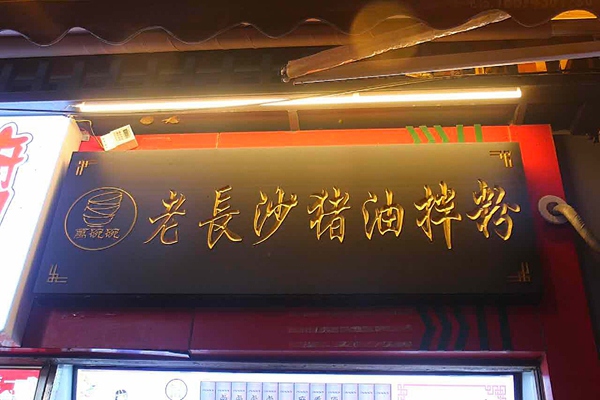 老長沙猪油拌粉
蒸碗碗